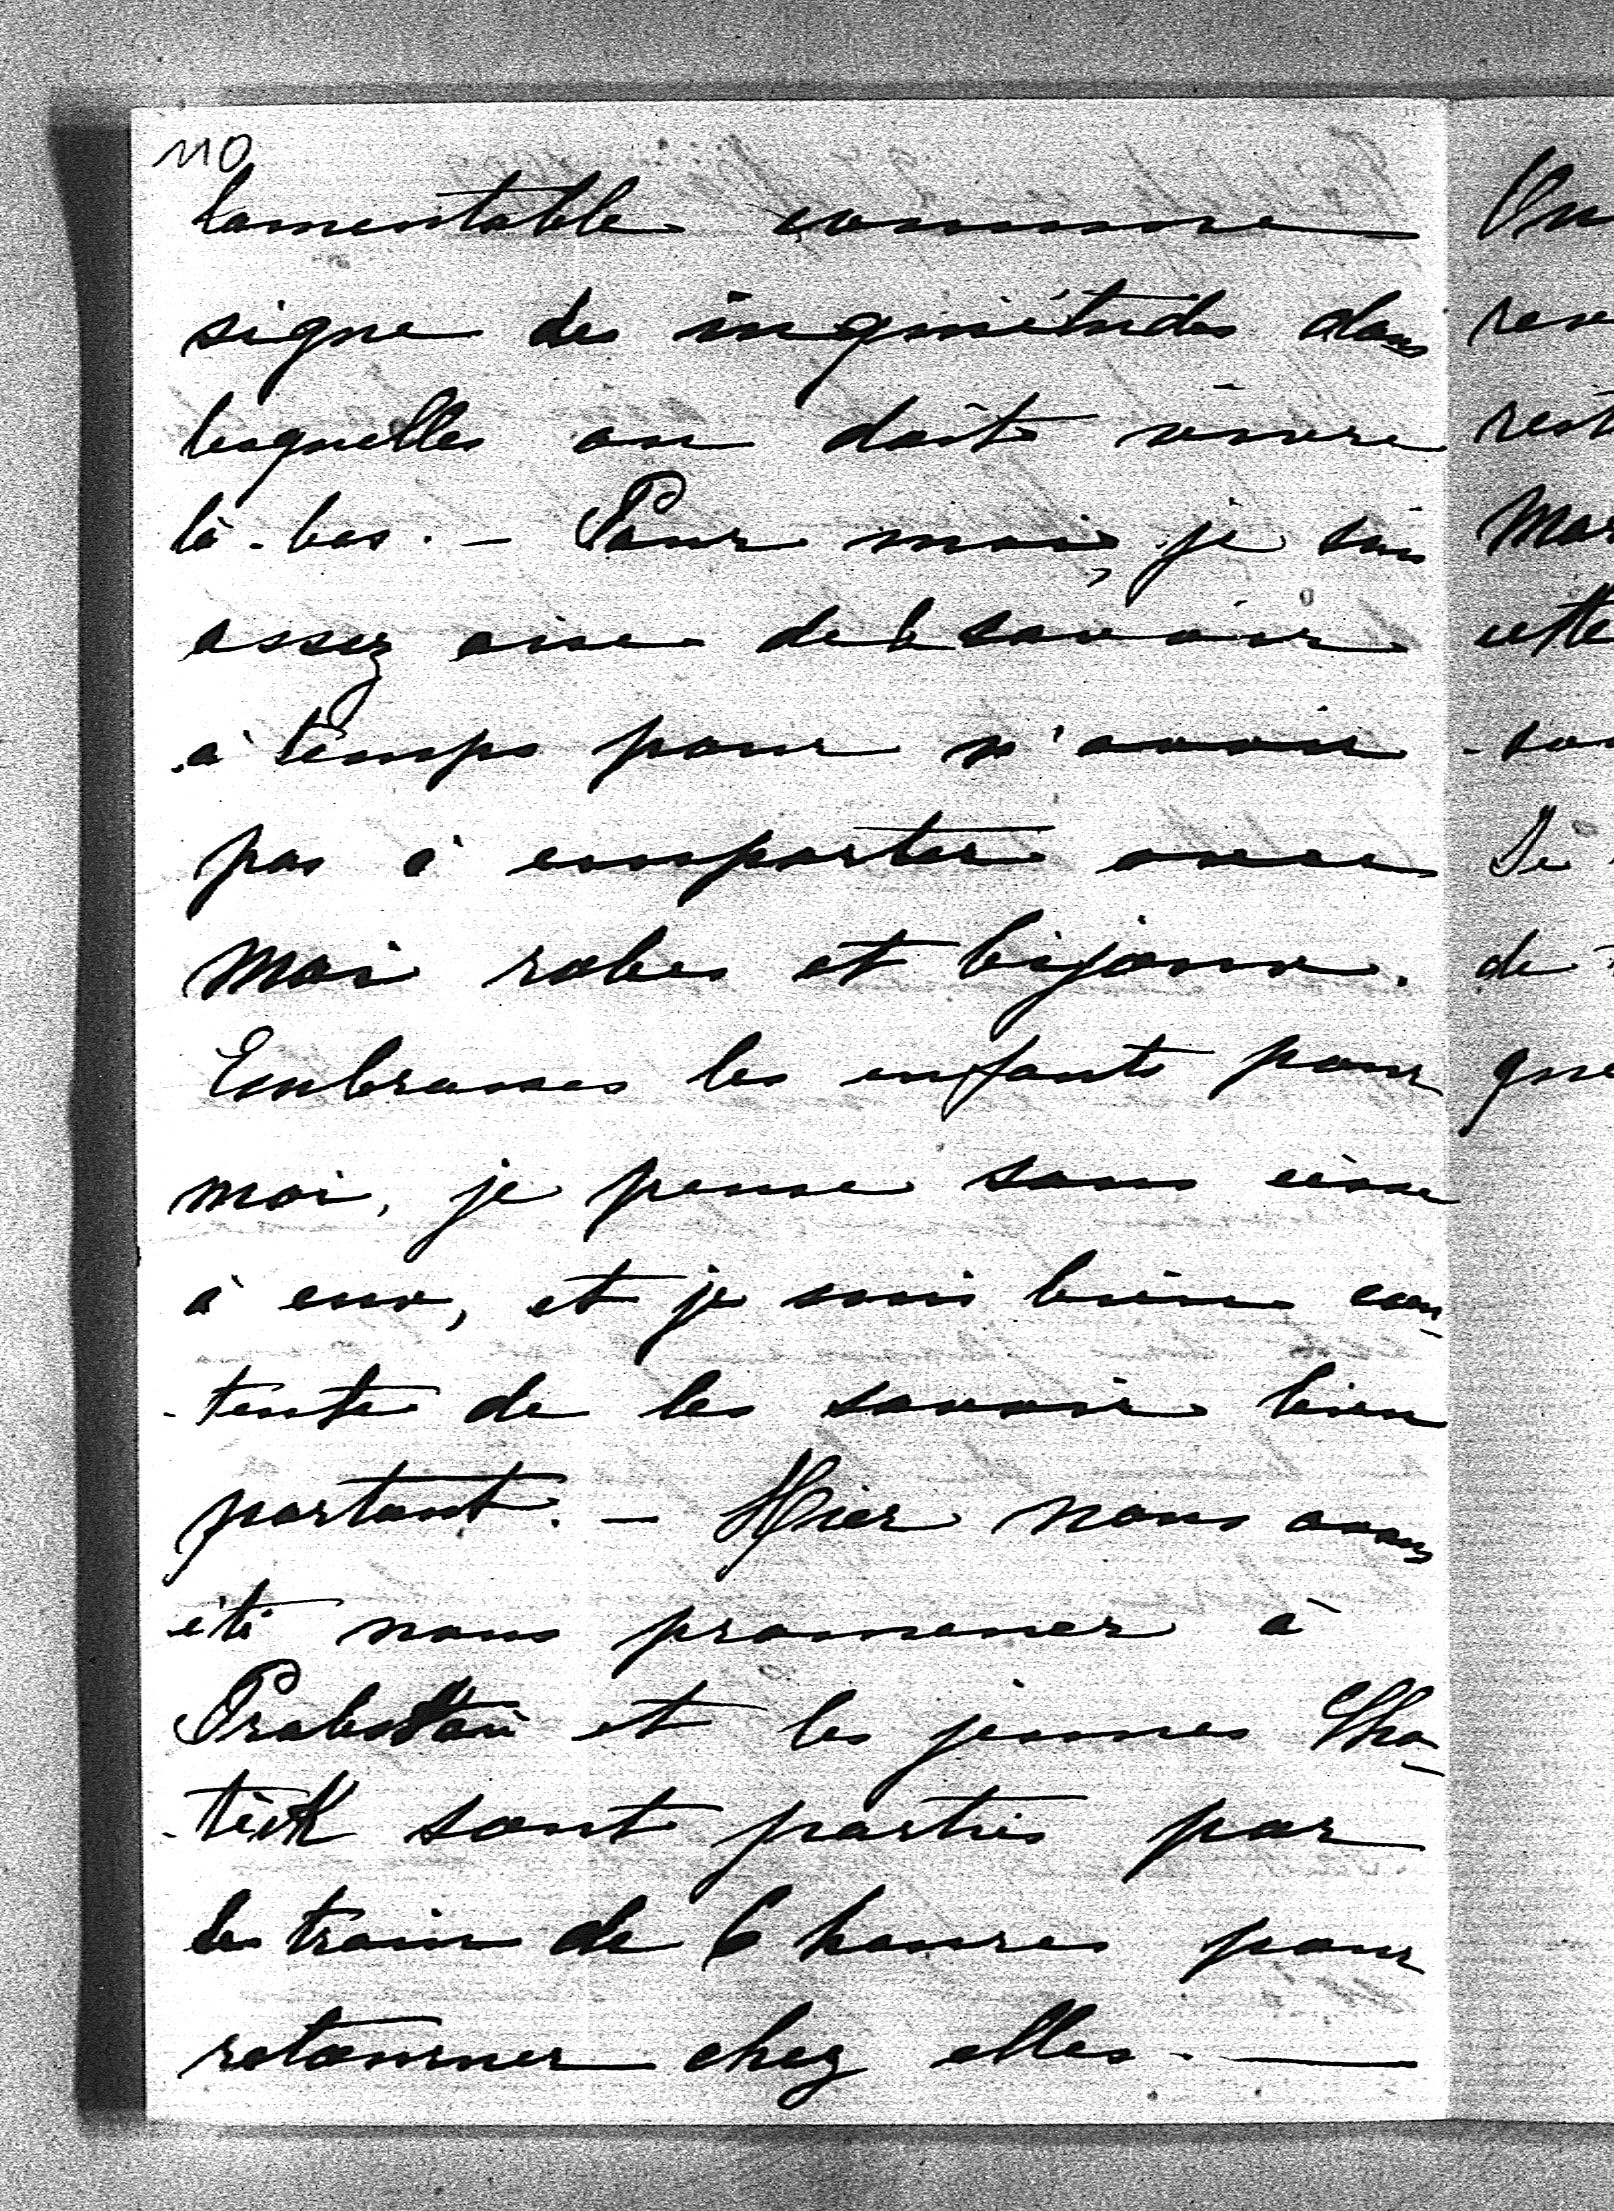 110
lamentable comme
signe des inquiétudes dans
lesquelles on doit vivre
là-bas. — Pour moi, je suis
assez aise de le savoir
à temps pour n'avoir
pas à emporter avec
moi robes et bijoux.
Embrasses les enfants pour
moi, je pense sans cèsse
à eux, et je suis bien con-
-tente de les savoir bien
portant. — Hier nous avons
été nous promener à
et les jeunes
-teck sont parties par
le train de 6 heures pour
retourner chez elles. —
On
rev
rest
Mar
cette
-son
Si
de
que